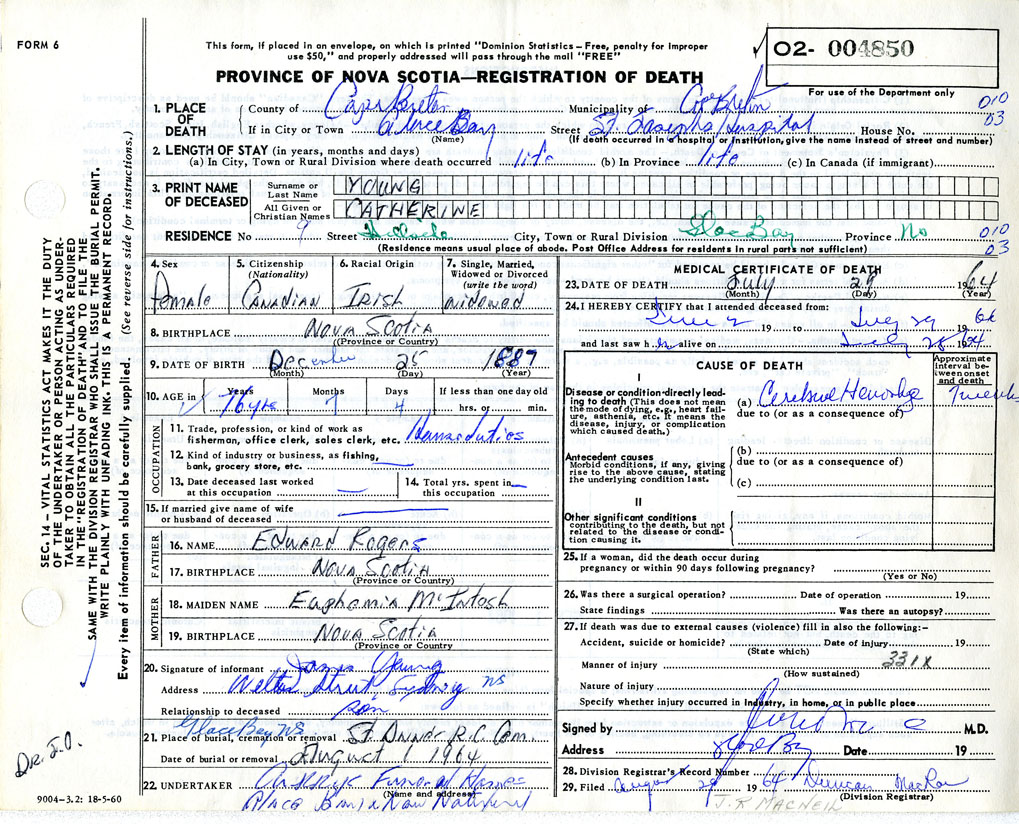 FORM 6
This form, if placed in an envelope, on which is printed "Dominion Statistics – Free, penalty for improper
use $50," and properly addressed will pass through the mail "FREE"
O2- 004850
For use of the Department only
PROVINCE OF NOVA SCOTIA—REGISTRATION OF DEATH
010
03
1. PLACE OF DEATH
County of Cape Breton Municipality of Cape Breton
If in City or Town Glace Bay Street St. Josephs Hospital House No.
(Name) (If death occurred in a hospital or institution, give the name instead of street and number)
2. LENGTH OF STAY (in years, months and days)
(a) In City, Town or Rural Division where death occurred life (b) In Province life (c) In Canada (if immigrant)
3. PRINT NAME OF DECEASED
Surname or Last Name YOUNG
All Given or Christian Names CATHERINE
RESIDENCE No 9 Street City, Town or Rural Division Glace Bay Province NS
010
03
(Residence means usual place of abode. Post Office Address for residents in rural parts not sufficient)
4. Sex Female
5. Citizenship (Nationality) CANADIAN
6. Racial Origin IRISH
7. Single, Married, Widowed or Divorced (write the word) widowed
8. BIRTHPLACE NOVA SCOTIA
(Province or Country)
9. DATE OF BIRTH December 25 1887
(Month) (Day) (Year)
10. AGE in Years 76 yrs Months 7 Days 4 If less than one day old hrs. or min.
OCCUPATION
11. Trade, profession, or kind of work as fisherman, office clerk, sales clerk, etc. Home duties
12. Kind of industry or business, as fishing, bank, grocery store, etc. —
13. Date deceased last worked at this occupation —
14. Total yrs. spent in this occupation —
15. If married give name of wife or husband of deceased —
FATHER
16. NAME EDWARD Rogers
17. BIRTHPLACE NOVA SCOTIA
(Province or Country)
MOTHER
18. MAIDEN NAME Euphemia McIntosh
19. BIRTHPLACE NOVA SCOTIA
(Province or Country
20. Signature of informant James Young
Address Street, Sydney NS
Relationship to deceased son
Glace Bay NS
21. Place of burial, cremation or removal St Annes R.C. Cem.
Date of burial or removal August 1 1964
22. UNDERTAKER Funeral Home
(Name and address)
Glace Bay
MEDICAL CERTIFICATE OF DEATH
23. DATE OF DEATH July 29 64
(Month) (Day) (Year)
24. I HEREBY CERTIFY that I attended deceased from:
June 2 19 to July 29 1964
and last saw her alive on July 28 1964
CAUSE OF DEATH
Approximate interval between onset and death
I
Disease or condition directly leading to death (This does not mean the mode of dying, e.g., heart failure, asthenia, etc. It means the disease, injury, or complication which caused death.)
(a)
due to (or as a consequence of)
Antecedent causes
Morbid conditions, if any, giving rise to the above cause, stating the underlying condition last.
(b)
due to (or as a consequence of)
(c)
II
Other significant conditions contributing to the death, but not related to the disease or condition causing it.
25. If a woman, did the death occur during
pregnancy or within 90 days following pregnancy?
(Yes or No)
26. Was there a surgical operation? Date of operation 19
State findings Was there an autopsy?
27. If death was due to external causes (violence) fill in also the following:–
Accident, suicide or homicide? Date of injury 19
(State which)
Manner of injury 331X
(How sustained)
Nature of injury
Specify whether injury occurred in Industry, in home, or in public place
Signed by M.D.
Address Glace Bay Date 19
28. Division Registrar's Record Number
29. Filed August 29 1964 Duncan MacRae
(Division Registrar)
J. R MACNEIL
SEC. 14 – VITAL STATISTICS ACT MAKES IT THE DUTY
OF THE UNDERTAKER OR PERSON ACTING AS UNDER-
TAKER TO OBTAIN ALL THE PARTICULARS REQUIRED
IN THE "REGISTRATION OF DEATH" AND TO FILE THE
SAME WITH THE DIVISION REGISTRAR WHO SHALL ISSUE THE BURIAL PERMIT.
WRITE PLAINLY WITH UNFADING INK. THIS IS A PERMANENT RECORD.
Every item of information should be carefully supplied. (See reverse side for instructions.)
9004–3.2: 18-5-60